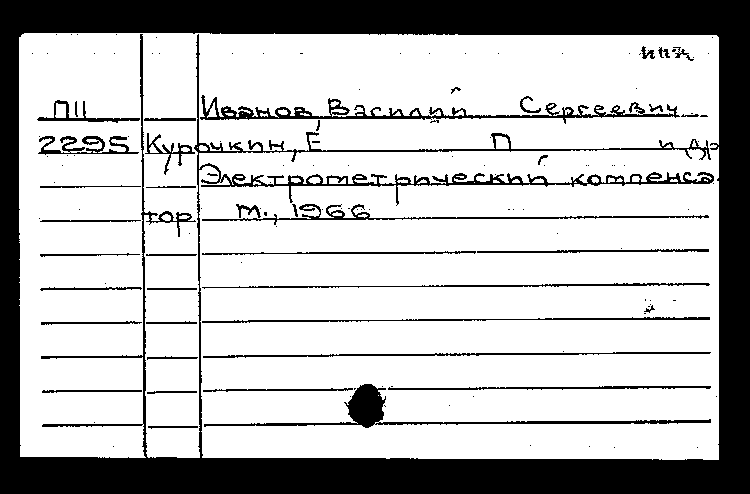 П11 Иванов, Василий Сергеевич
2295 Курочкин, Е П и др
Электрометрический компенса-
тор М., 1966